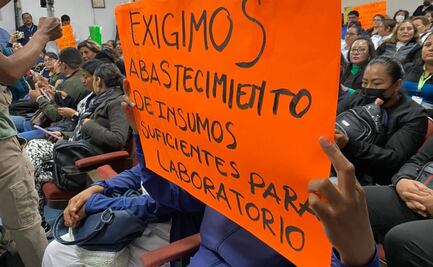 EXIGIMOS
ABASTECIMIENTO
DE INSUMOS
SUFICIENTES PARA
LABORATORIO